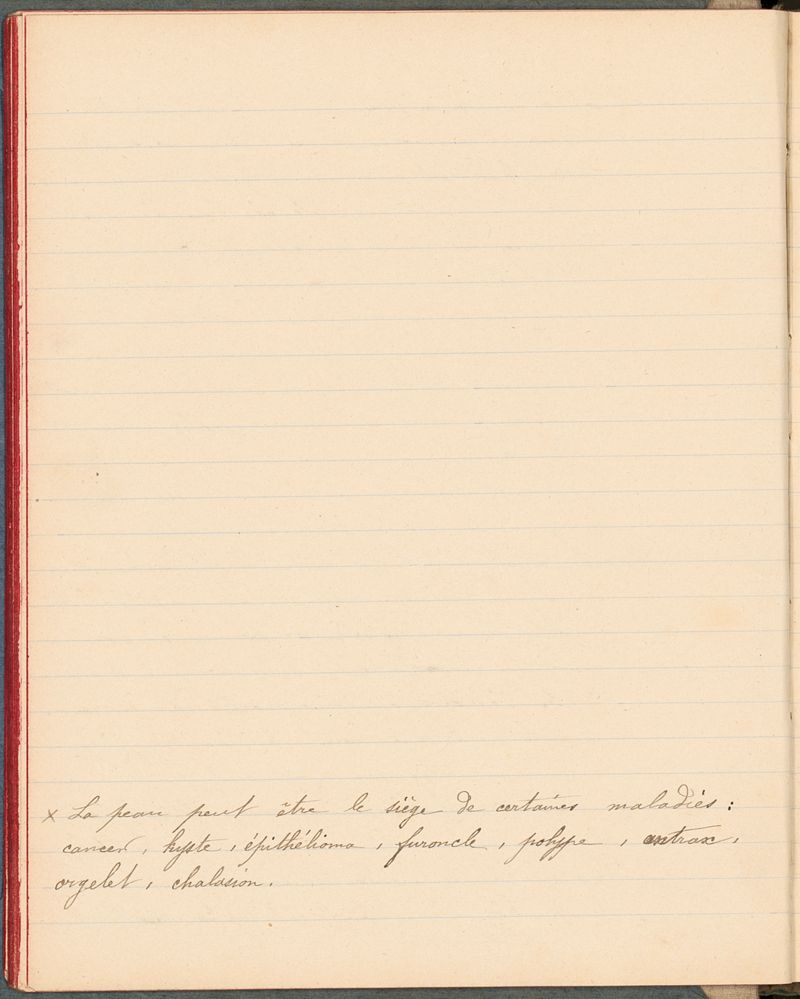 x La peau peut être le siège de certaines maladies :
cancer, kyste, épithélioma, furoncle, polype, antrax,
orgelet, chalasion.